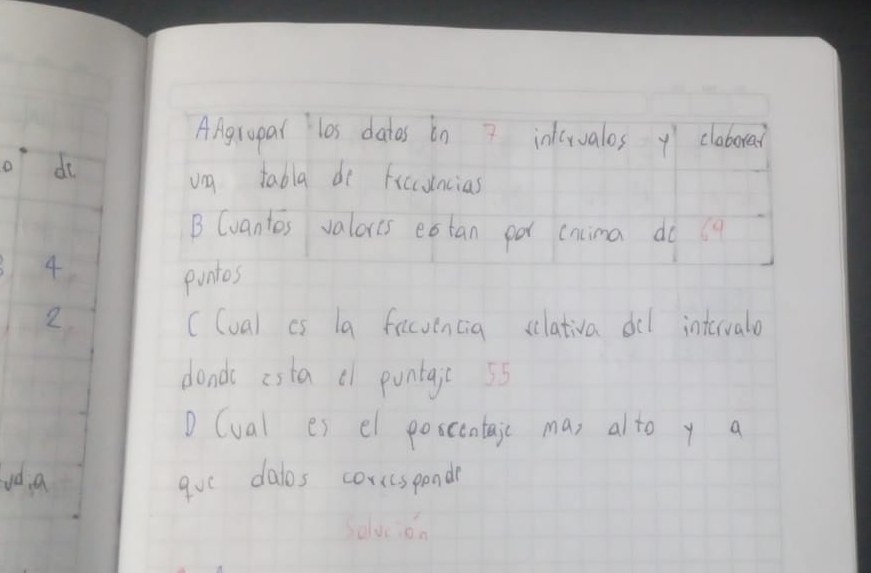 o de
4
2
udia
A Agrupar los datos en 7 intervalos y elaborar
una tabla de frecuencias
B Cuantos valores estan por encima de 69
puntos
C Cual es la frecuencia relativa del intervalo
donde esta el puntaje 55
D Cual es el porcentaje mas alto y a
que datos corresponde
Solución